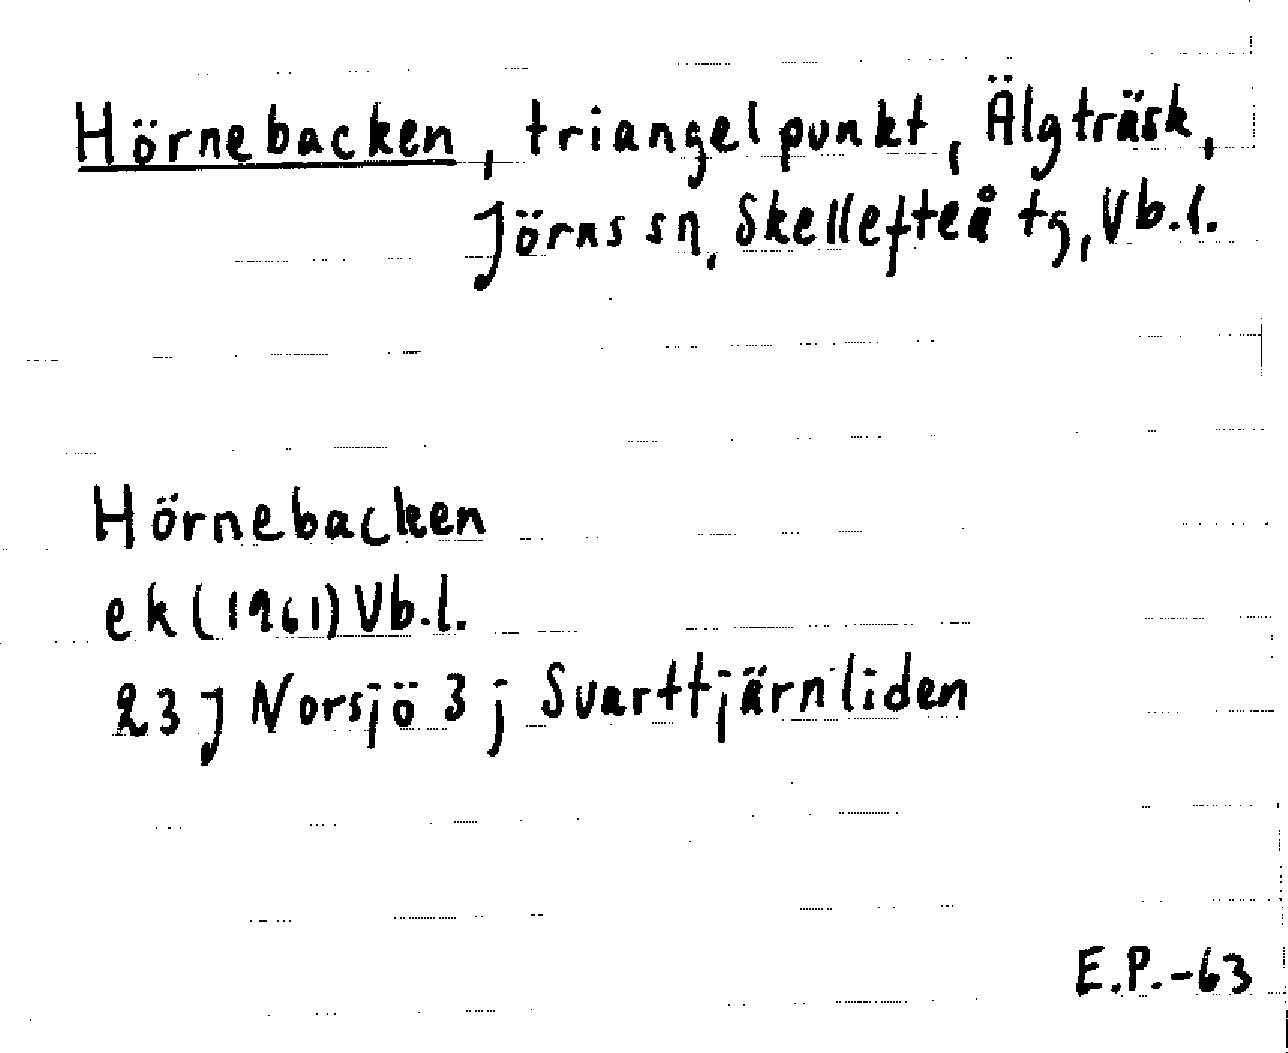 Hörnebacken, triangelpunkt, Älgträsk,
Jörns sn, Skellefteå tg, Vb.l.
Hörnebacken
ek (1961) Vb.l.
23 J Norsjö 3 j Svarttjärnliden
E.P.-63